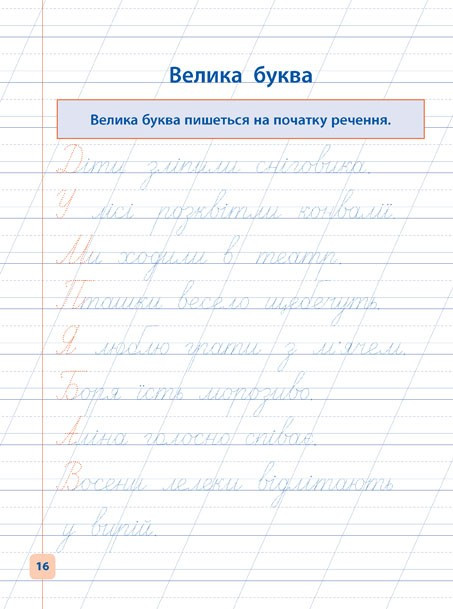 Велика буква
Велика буква пишеться на початку речення.
Діти зліпили сніговика.
У лісі розквітли конвалії.
Ми ходили в театр.
Пташки весело щебечуть.
Я люблю грати з м'ячем.
Боря їсть морозиво.
Аліна голосно співає.
Восени лелеки відлітають
у вирій.
16